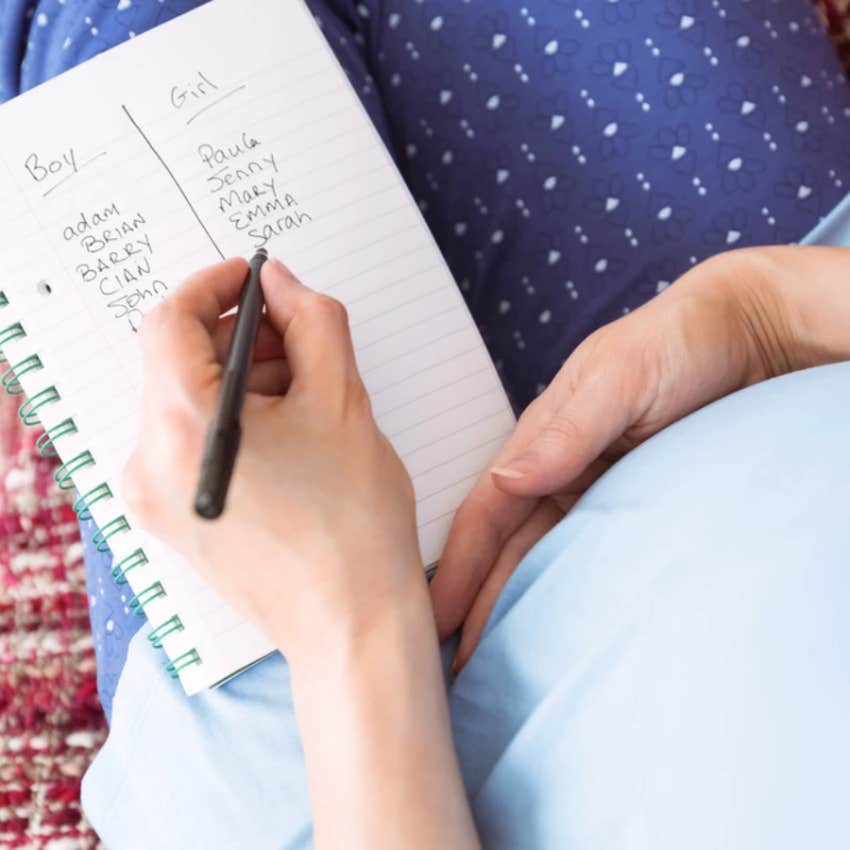 Boy
adam
BRIAN
BARRY
CIAN
John
Girl
Paula
Jenny
Mary
EMMA
Sarah